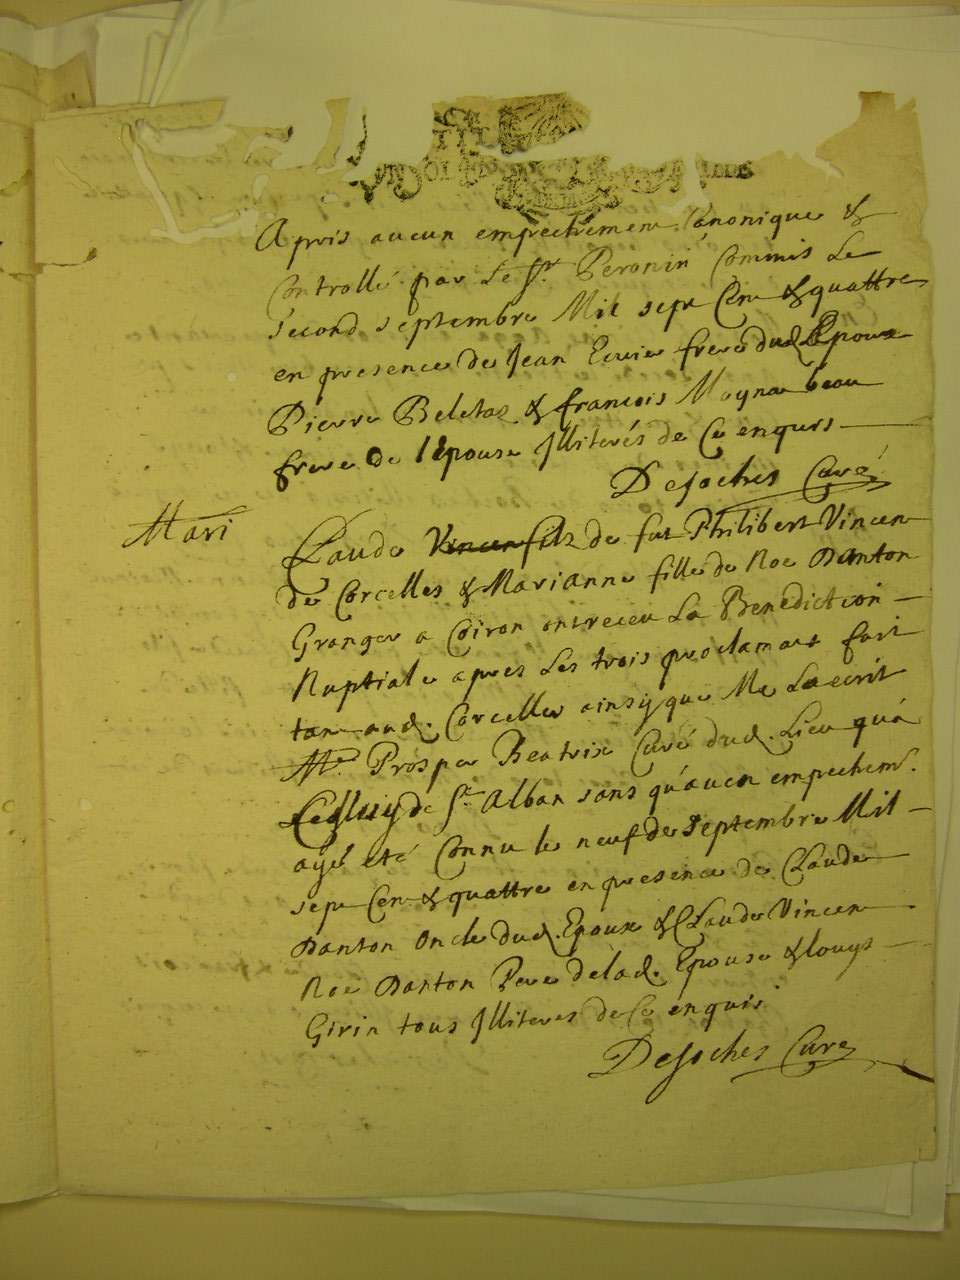 Apris aucun empechement Canonique &
Controllé par le Sr. Peronin Commis Le
second septembre Mil sept Cent & quattre
en presence de Jean frere dud. Epoux
Pierre Beletaz & francois Moyna beau
frere de l'Epouse Illiterés de Ce enquis
Desoches Curé
Mari
Claude Vincen filz de fut Philibert Vincen
de Corcelles & Marianne fille de Noe Danton
Granger a Coiron ont receu La Benediction
Nuptiale apres Les trois proclamat fait
tant aud. Corcelles ainsy que Me La ecrit
Mr. Prosper Beatrix Curé dud. Lieu qu'á
de St. Alban sans qu'aucun empechemt.
aye eté Connu le neuf de septembre Mil
sept Cent & quattre en presence de Claude
Danton Oncle dud. Epoux & Claude Vincen
Noe Danton Pere de lad. Epouse & louys
Girin tous Illiteres de Ce enquis
Desoches Curé